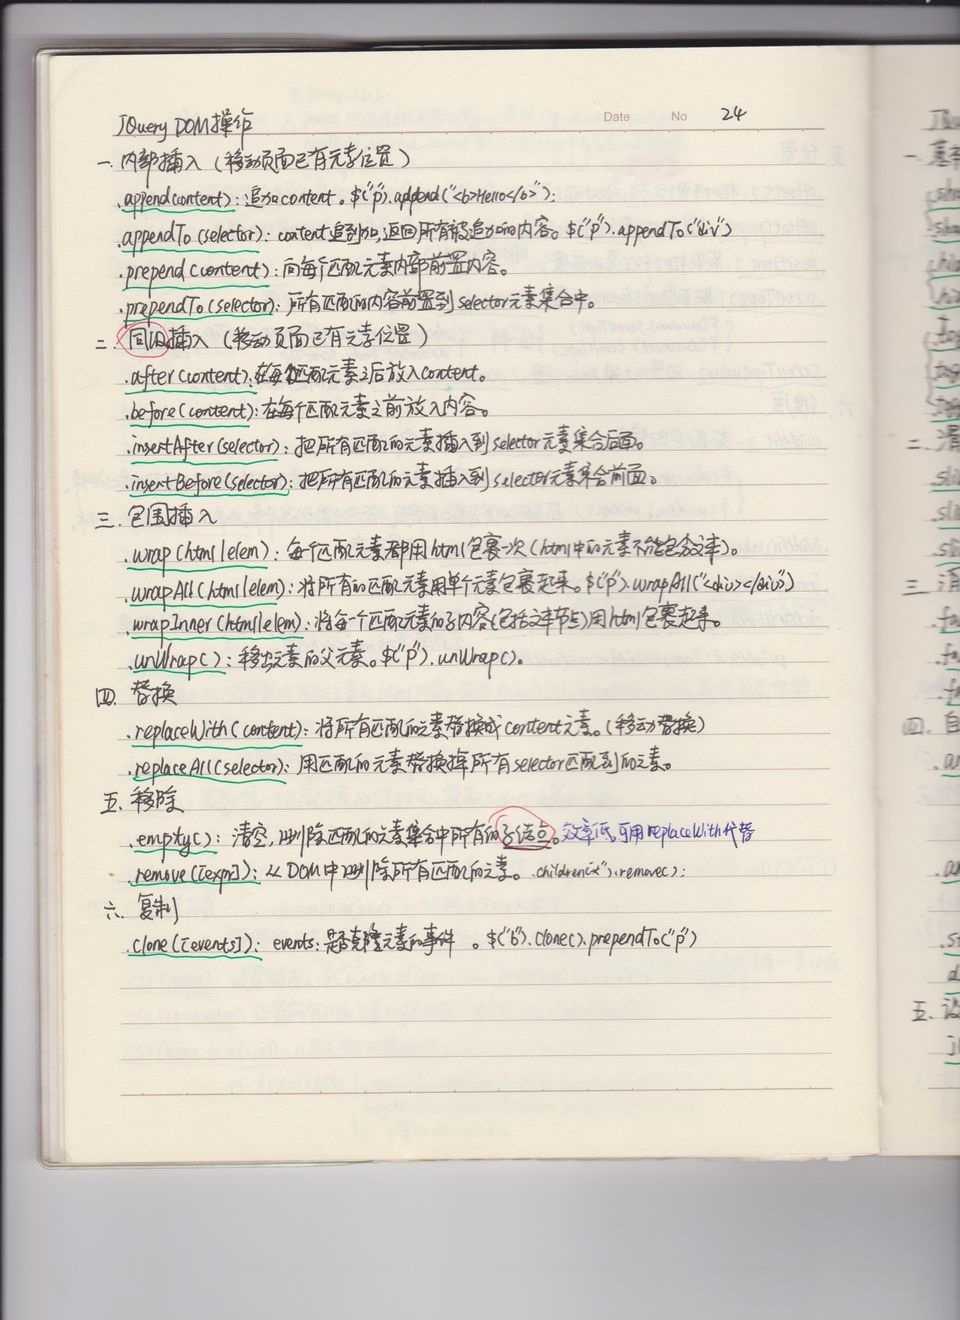 Date No 24
JQuery DOM操作
一. 内部插入（移动页面已有元素位置）
.append(content)：追加content。$("p").append("<b>Hello</b>")；
.appendTo(selector)：content追到加，返回所有被追加的内容。$("p").appendTo("div")
.prepend(content)：向每个匹配元素内部前置内容。
.prependTo(selector)：所有匹配的内容前置到selector元素集合中。
二. 插入（移动页面已有元素位置）
.after(content)：在每个匹配元素之后放入content。
.before(content)：在每个匹配元素之前放入内容。
.insertAfter(selector)：把所有匹配的元素插入到selector元素集合后面。
.insertBefore(selector)：把所有匹配的元素插入到selector元素集合前面。
三. 包围插入
.wrap(html|elem)：每个匹配元素都用html包裹一次（html中的元素不能包含文本）。
.wrapAll(html|elem)：将所有的匹配元素用单个元素包裹起来。$("p").wrapAll("<div></div>")
.wrapInner(html|elem)：将每一个匹配元素的子内容(包括文本节点)用html包裹起来。
.unWrap()：移出元素的父元素。$("p").unWrap()。
四. 替换
.replaceWith(content)：将所有匹配的元素替换成content元素。(移动替换)
.replaceAll(selector)：用匹配的元素替换掉所有selector匹配到的元素。
五. 移除
.empty()：清空，删除匹配的元素集合中所有的子结点。效率低，可用replaceWith代替
.remove([exp])：从DOM中删除所有匹配的元素。.children("a").remove()；
六. 复制
.clone([events])：events：是否克隆元素的事件。$("b").clone().prependTo("p")